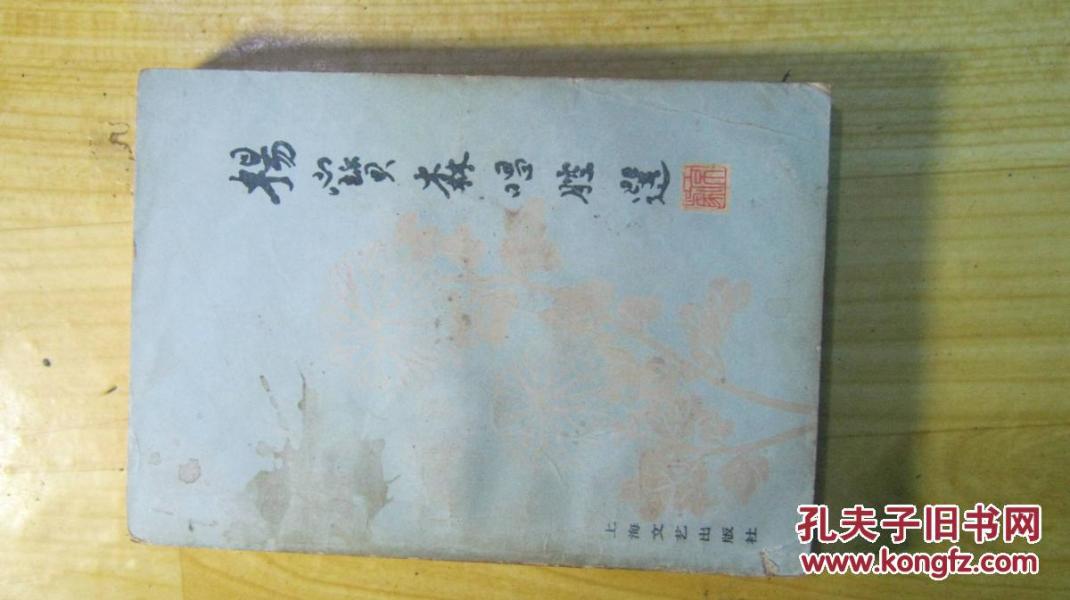 楊寳森唱腔選
上海文艺出版社
孔夫子旧书网
www.kongfz.com